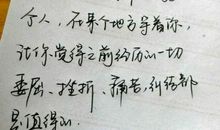 个人,在某个地方等着你,
让你觉得之前经历的一切
委屈、挫折、痛苦,纠结都
是值得的。